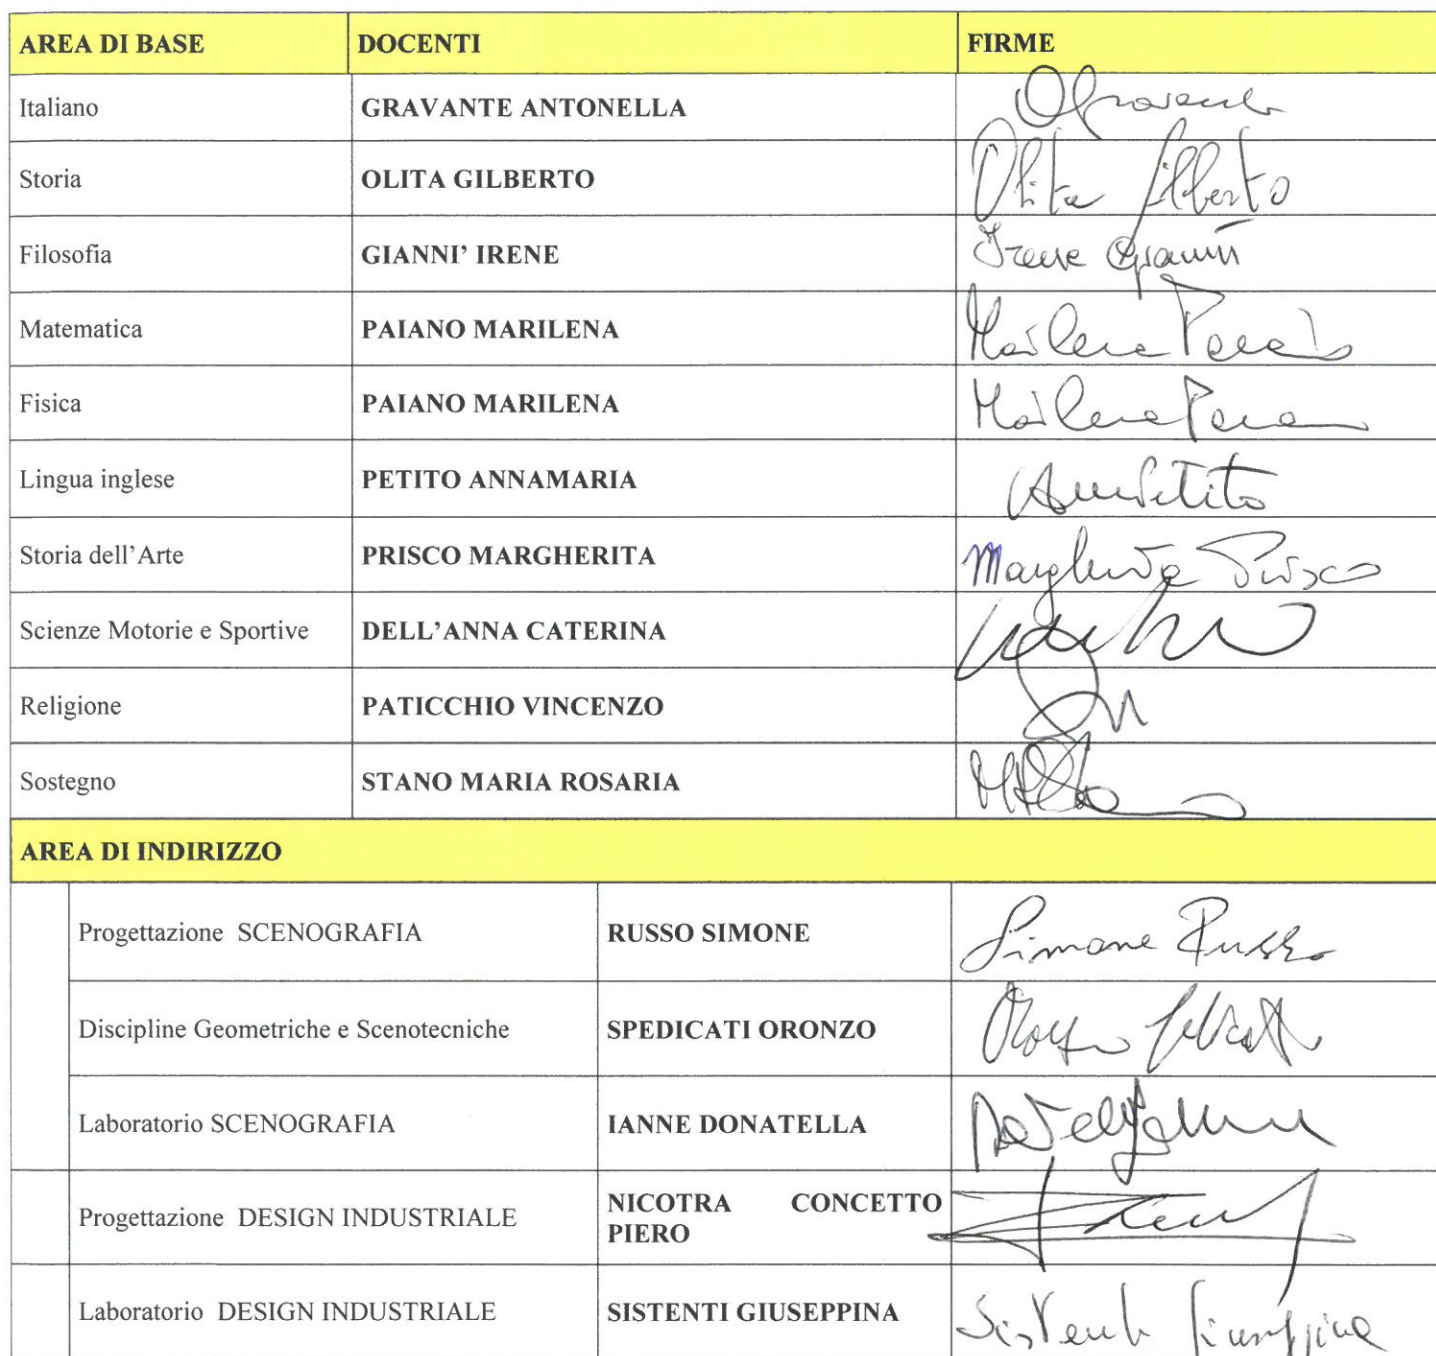 AREA DI BASE DOCENTI FIRME
Italiano GRAVANTE ANTONELLA
Storia OLITA GILBERTO Olita Gilberto
Filosofia GIANNI’ IRENE Irene Giannì
Matematica PAIANO MARILENA Marilena Paiano
Fisica PAIANO MARILENA Marilena Paiano
Lingua inglese PETITO ANNAMARIA
Storia dell’Arte PRISCO MARGHERITA Margherita Prisco
Scienze Motorie e Sportive DELL’ANNA CATERINA
Religione PATICCHIO VINCENZO
Sostegno STANO MARIA ROSARIA
AREA DI INDIRIZZO
Progettazione SCENOGRAFIA RUSSO SIMONE Simone Russo
Discipline Geometriche e Scenotecniche SPEDICATI ORONZO
Laboratorio SCENOGRAFIA IANNE DONATELLA
Progettazione DESIGN INDUSTRIALE NICOTRA CONCETTO
PIERO
Laboratorio DESIGN INDUSTRIALE SISTENTI GIUSEPPINA Sistenti Giuseppina